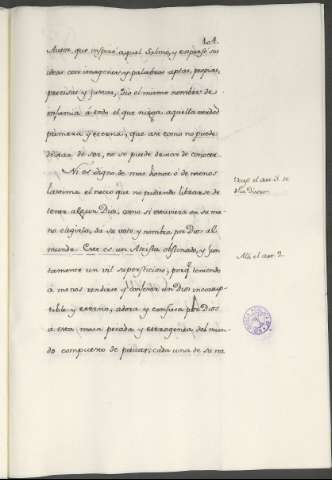 101.
Autor, que inspiró aquel Salmo, y expresó sus
ideas con imagenes, y palabras aptas, propias,
precisas y justas, dio el mismo nombre de
infamia á todo el que niega aquella verdad
primera y eterna, que asi como no puede
dexar de ser, no se puede dexar de conocer.
Ni es digno de mas honor ó de menos
lastima el necio que no pudiendo librarse de
tener algun Dios, como si estuviera en su ma-
no elegirlo, da su voto y nombra por Dios al
mundo. Este es un Ateista obstinado, y jun-
tamente un vil supersticioso, porq.e teniendo
á menos rendirse y confesar un Dios incorrup-
tible y eterno, adora y confiesa por Dios
á esta masa pesada y heterogenea del mun-
do compuesto de partes, cada una de su na
el art. 3. de
Alli el art. 2.